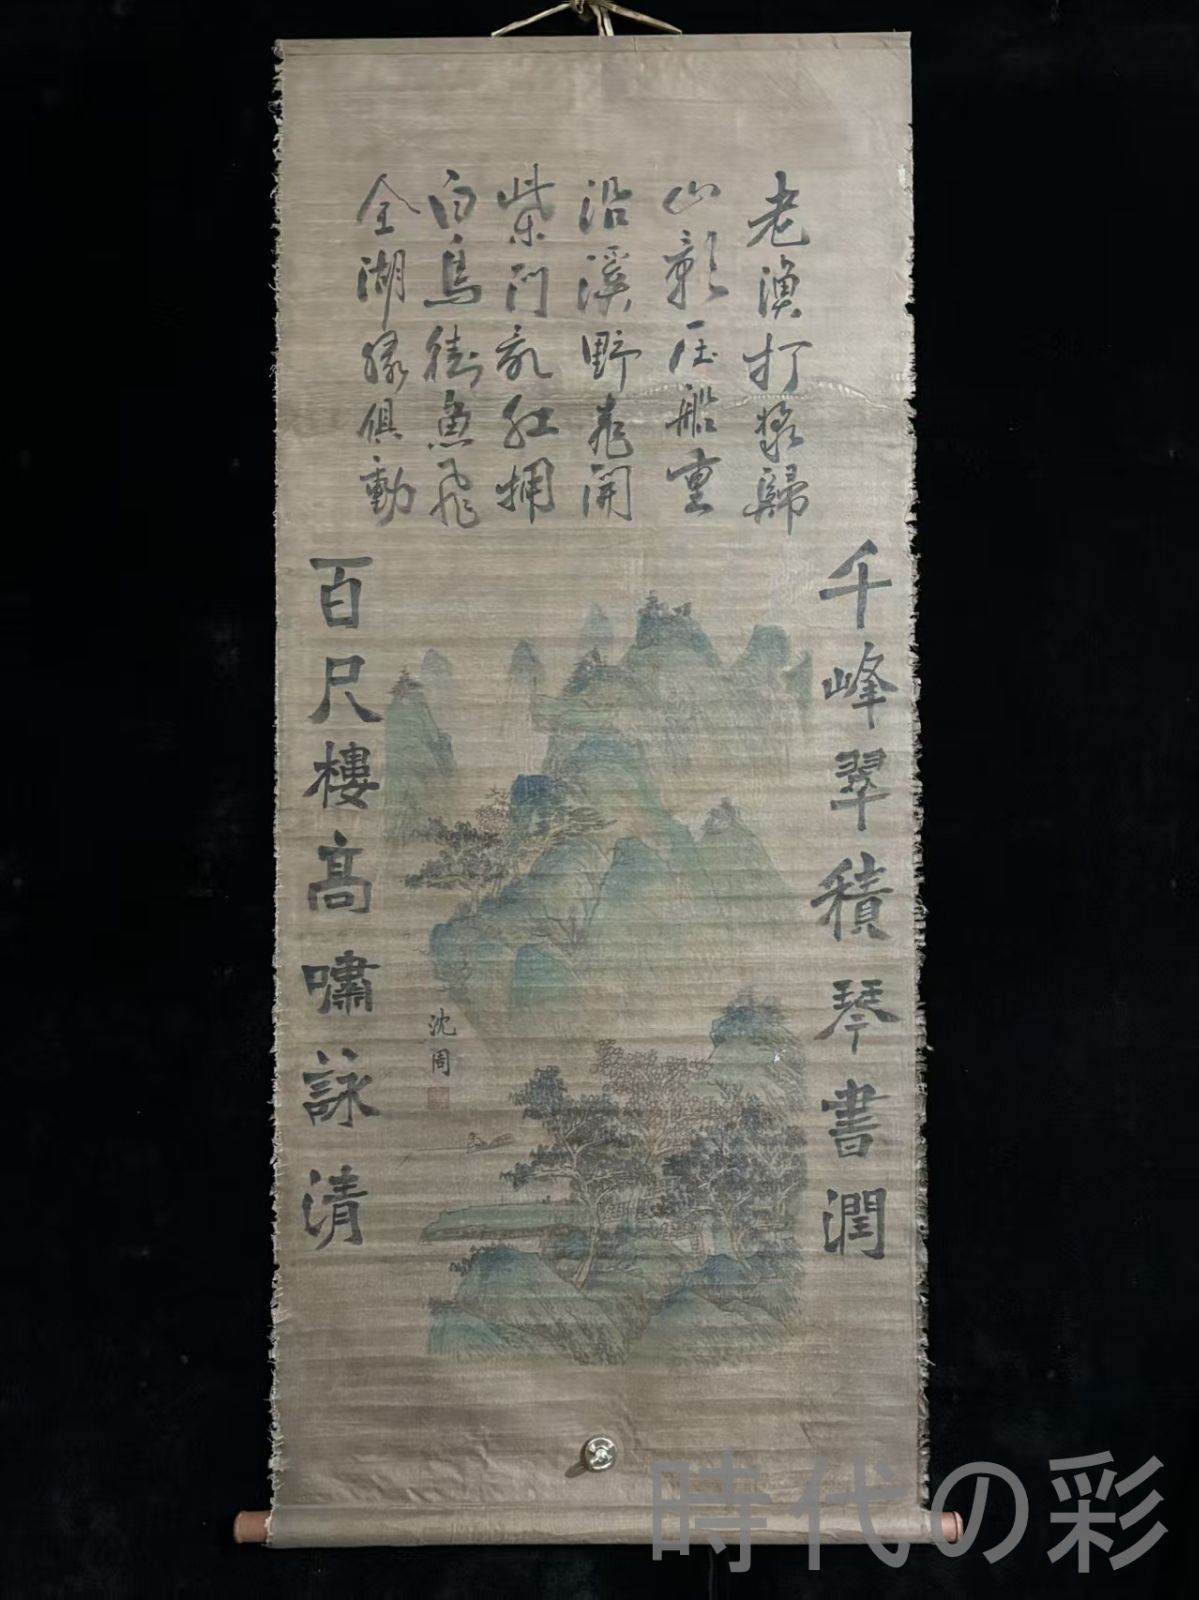 老漁打槳歸
山影压船重
沿溪野花開
柴門乱紅擁
白鳥銜魚飛
全湖緑俱動
千峰翠積琴書潤
百尺樓高嘯詠清
沈周
時代の彩